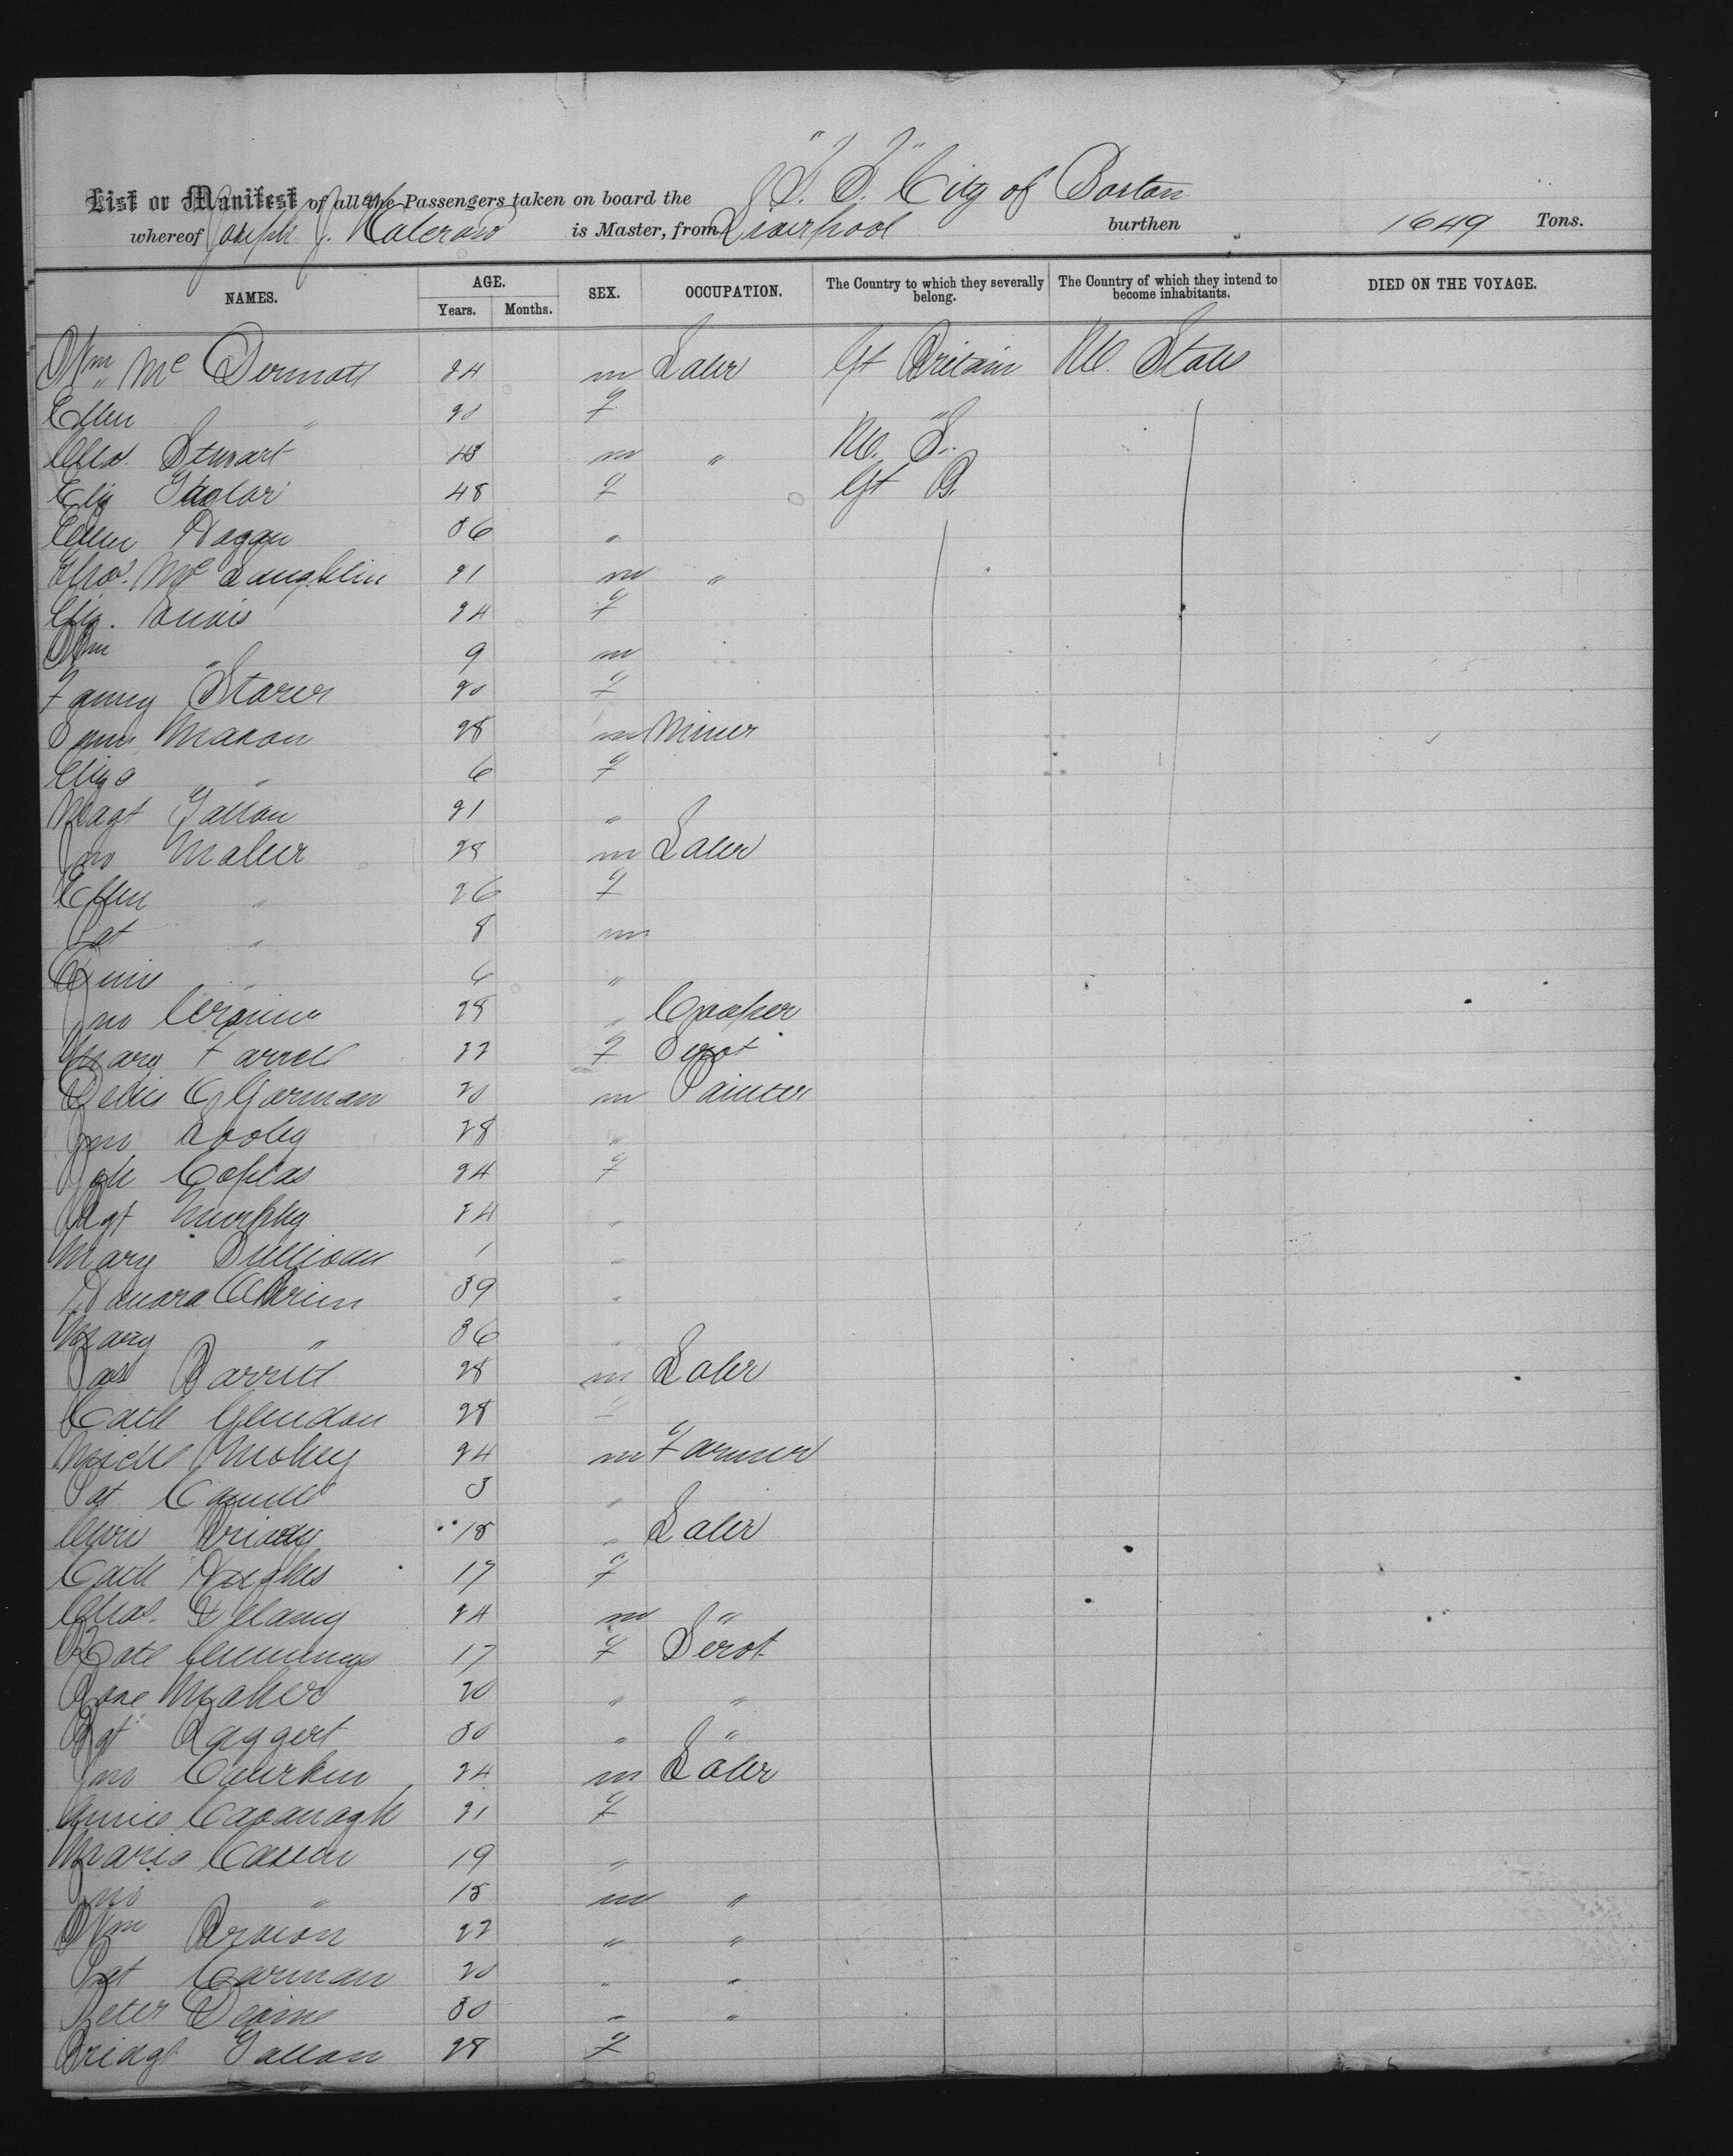 List or Manifest of all the Passengers taken on board the "S. S." City of Boston
whereof Joseph J. is Master, from Liverpool burthen 1649 Tons.
NAMES. AGE. Years. Months. SEX. OCCUPATION. The Country to which they severally belong. The Country of which they intend to become inhabitants. DIED ON THE VOYAGE.
Wm Mc Dermott 24 m Laber Gt Britain Ud. States
Ellen " 20 f "
Chas. Stewart 43 m " Ud. S.
Eliz Taylor 48 f Gt B.
Ellen 36 "
Thos. Mc Laughlin 21 m "
Eliz. 24 f
Wm " 9 m
Fanny Storer 20 f
Mason 28 m Miner
Eliza " 6 f
Magt Gallon 21 "
Jno Maher 28 m Laber
Ellen " 26 f
Pat " 8 m
" 6 "
Jno Cronin 28 " Cooper
Mary Farrell 22 f Servt
O Gorman 20 m Painter
Jno Dooley 28 "
24 f
Bgt Murphy 24 "
Mary Sullivan 1 "
Hanora OBrien 39 "
Mary " 36 "
Jas Barrett 28 m Laber
Cath Glendon 28 f
Michl 24 m Farmer
Pat 3 "
15 " Laber
Cath Hughes 17 f
Chas. Delany 24 m "
Kate Cummings 17 f Servt
Rose Maher 20 " "
Bgt Taggert 30 " "
Jno 24 m Laber
Annie Cavanagh 21 f
Maria 19 "
Jno " 15 m "
Wm 22 " "
Pat Gorman 20 " "
Peter 30 " "
Bridgt Gallon 28 f